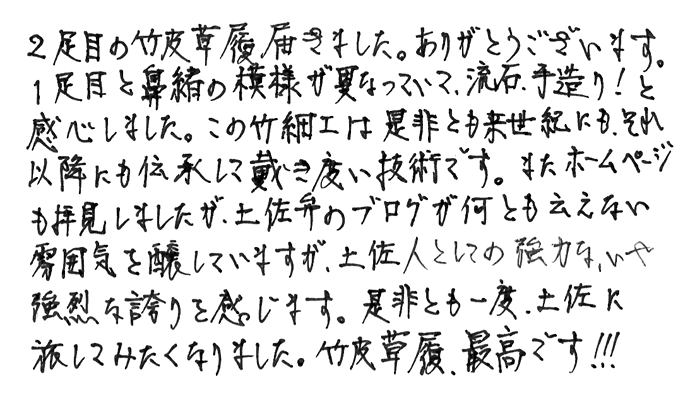 2足目の竹皮草履届きました。ありがとうございます。
1足目と鼻緒の模様が異なっていて、流石、手造り！と
感心しました。この竹細工は是非とも来世紀にも、それ
以降にも伝承して戴き度い技術です。またホームページ
も拝見しましたが、土佐弁のブログが何とも云えない
雰囲気を醸していますが、土佐人としての強力な、いや
強烈な誇りを感じます。是非とも一度、土佐に
旅してみたくなりました。竹皮草履、最高です!!!